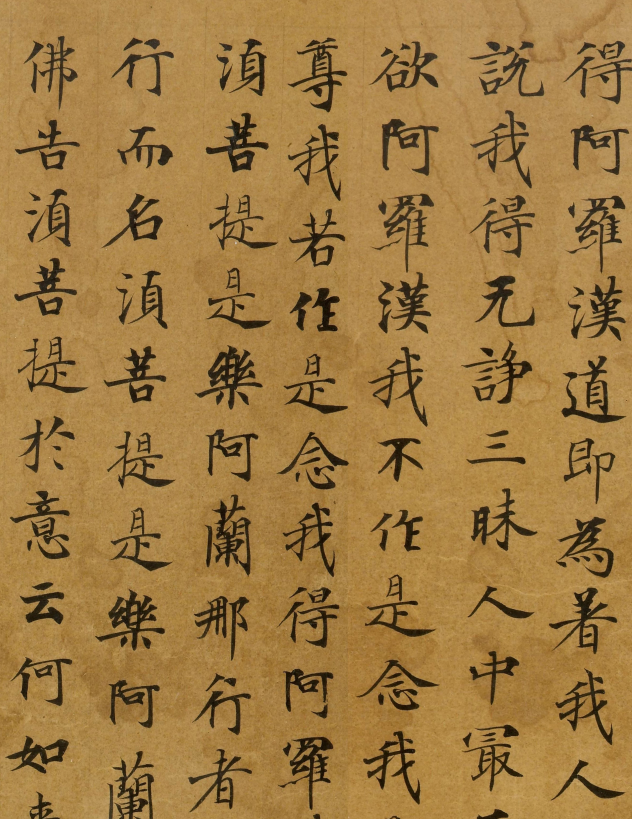 得阿羅漢道即為著我人
説我得无諍三昧人中冣
欲阿羅漢我不作是念我
尊我若作是念我得阿羅
湏菩提是樂阿蘭那行者
行而名湏菩提是樂阿蘭
佛告湏菩提於意云何如来